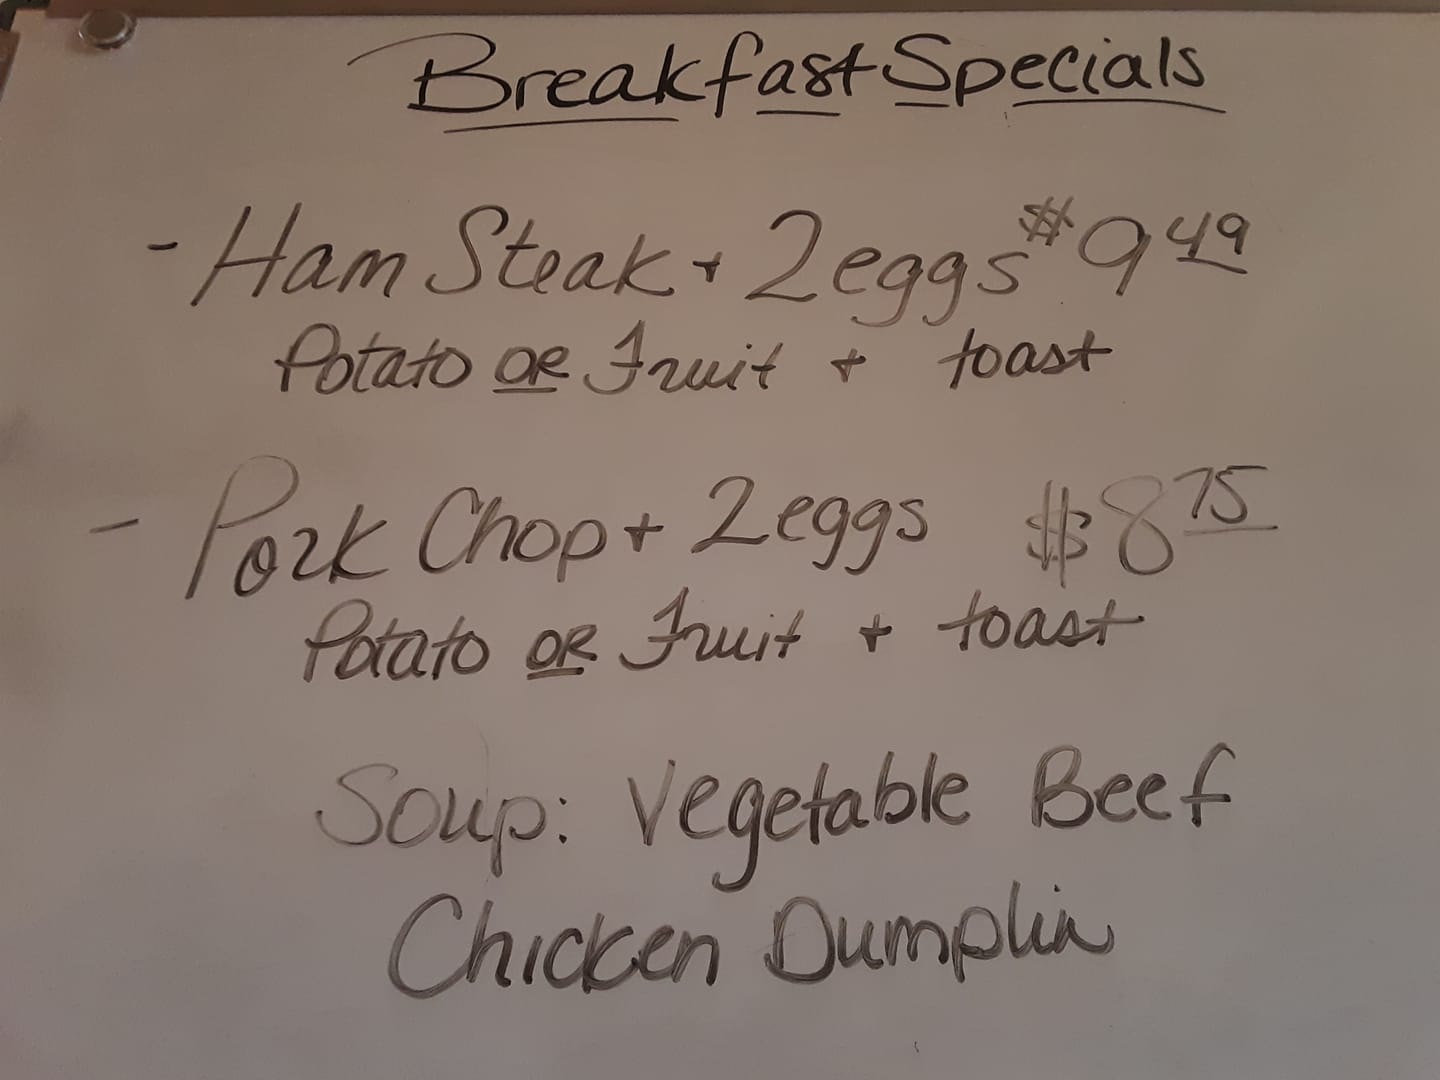 Breakfast Specials
- Ham Steak + 2 eggs $9.49
Potato OR Fruit + toast
- Pork Chop + 2 eggs $8.75
Potato OR Fruit + toast
Soup: Vegetable Beef
Chicken Dumplin